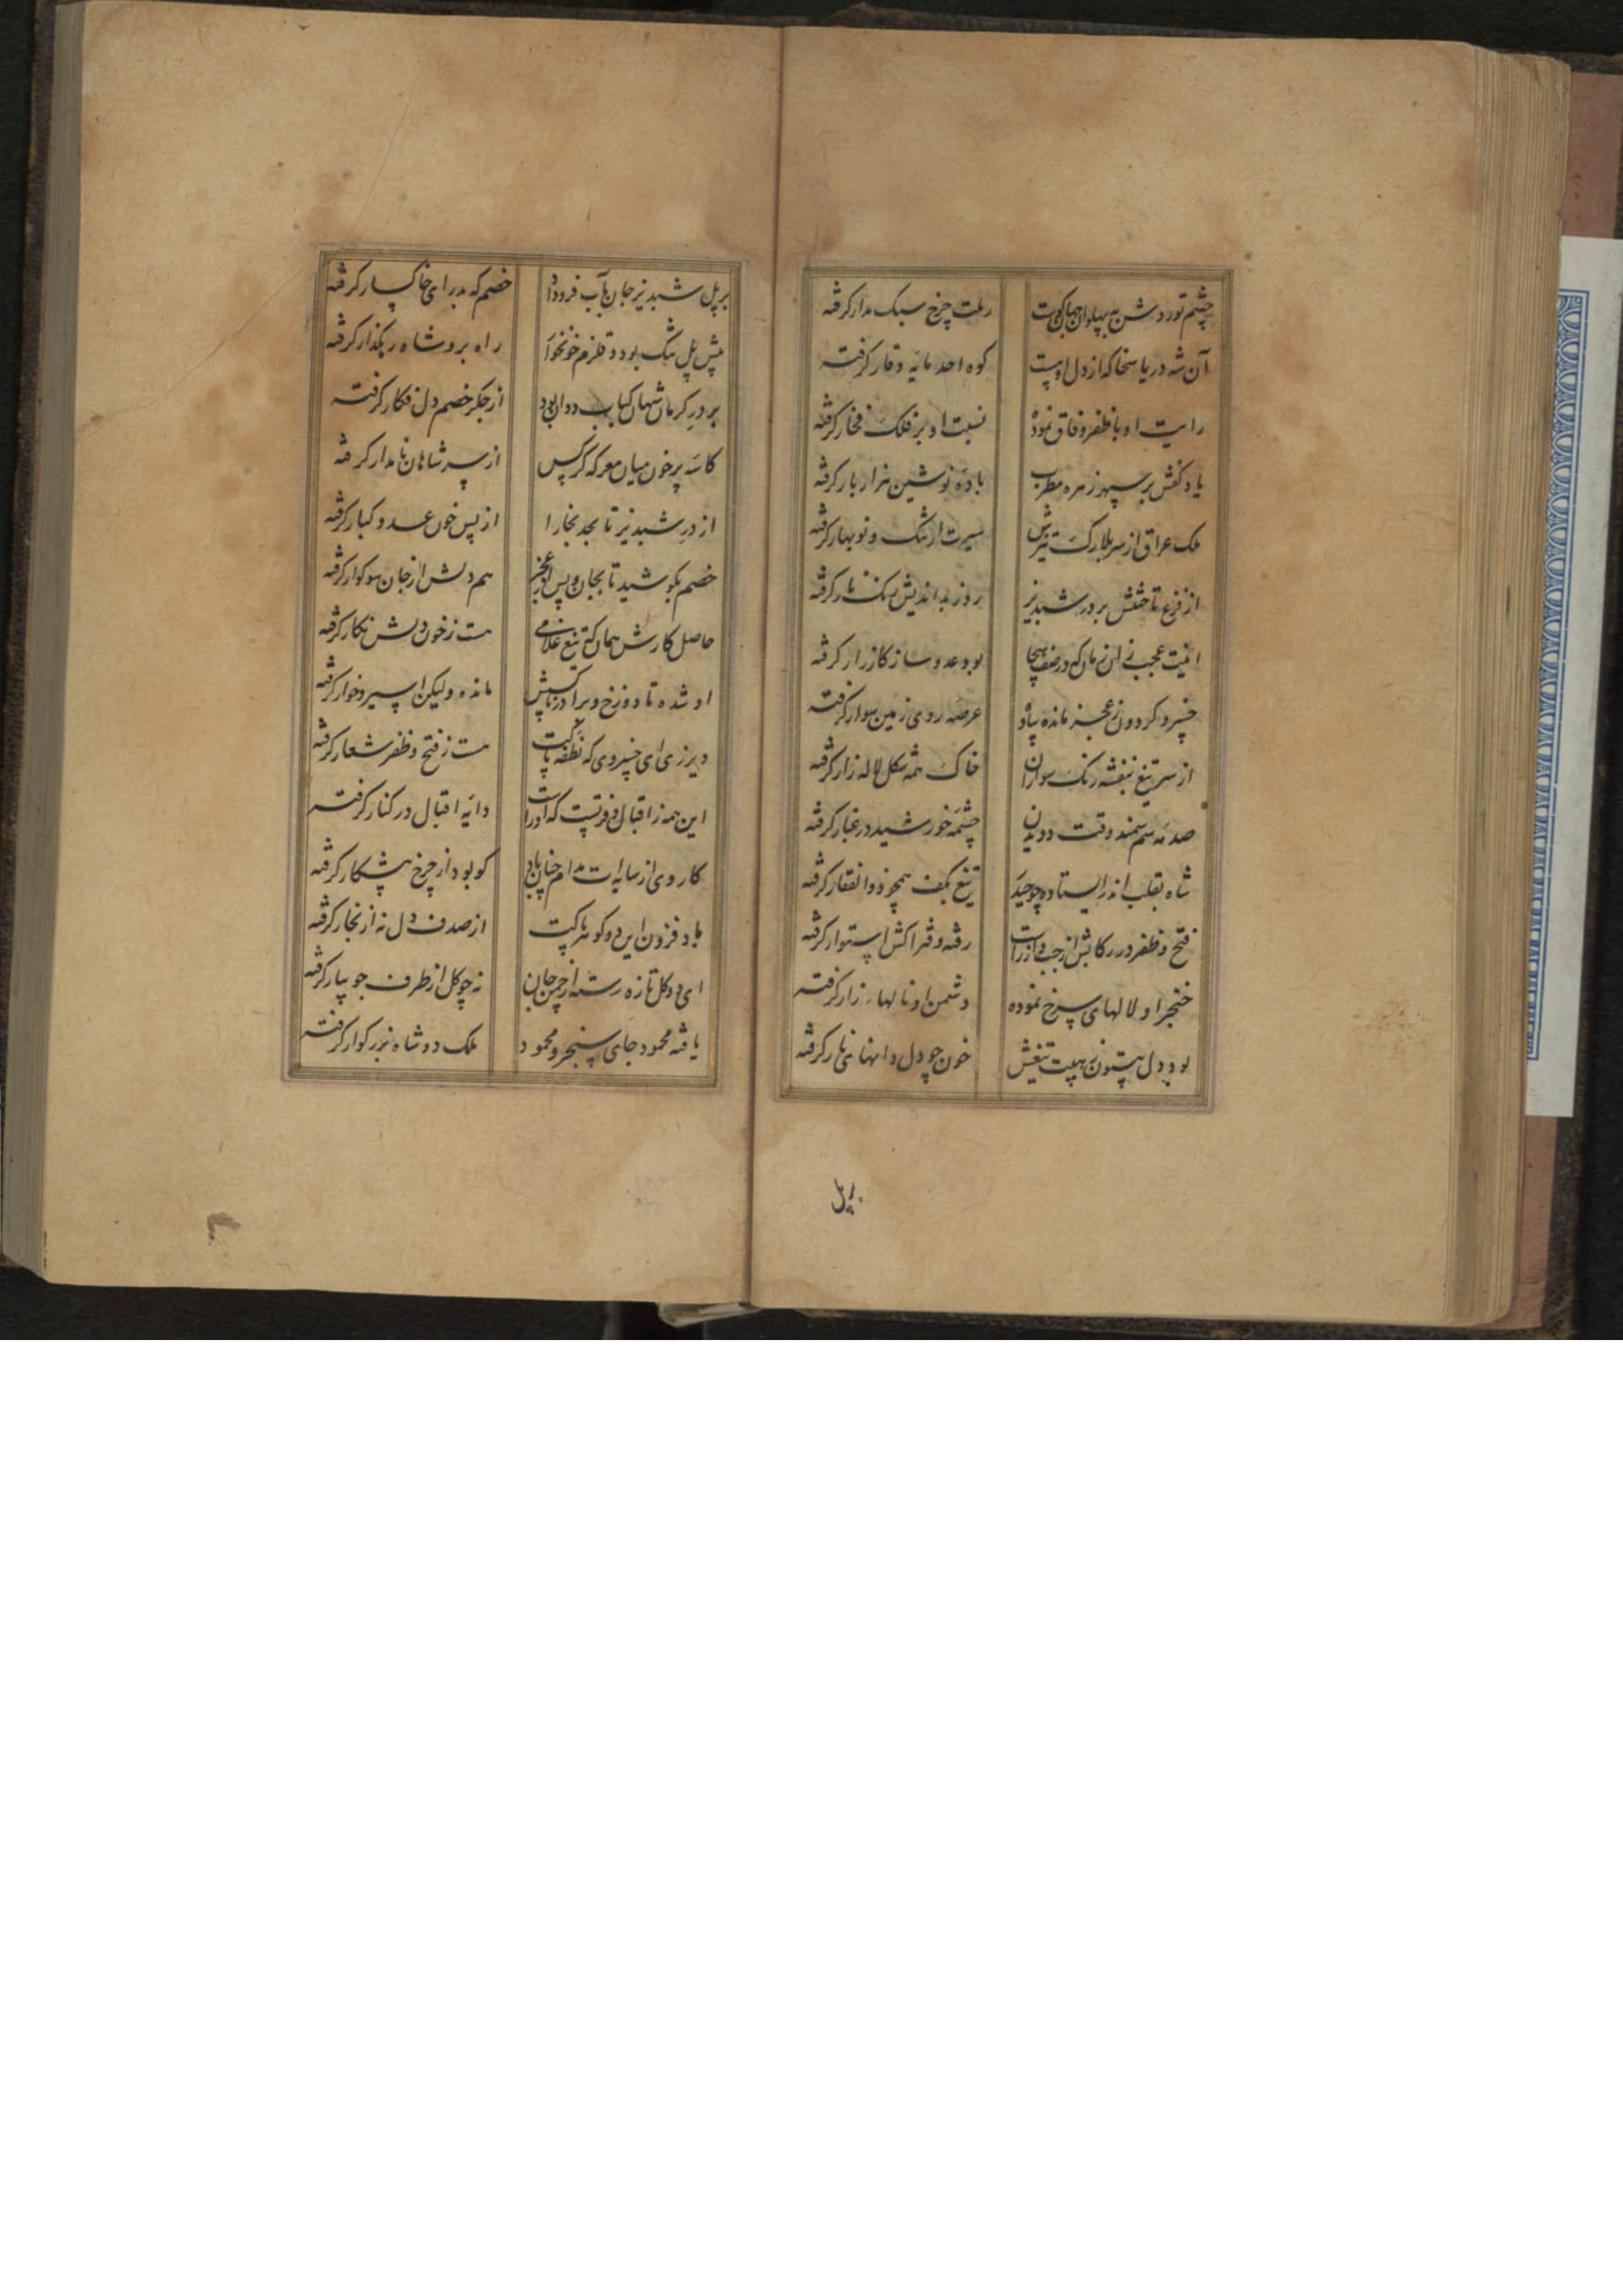 چشم تو روشن به پهلوان جهان کوست
رملت چرخ سبک مدار کرفته
آن شه دریا سخا که از دل او هست
کوه احد مایه وقار کرفته
رایت او با ظفر وفاق نموده
نسبت او بر فلک فخار کرفته
یاد کفش بر سپهر زهره مطرب
باده نوشین هزار بار کرفته
ملک عراق از سر بلارک تیزش
سیرت ارتنک و نوبهار کرفته
از فزع تاختنش بر در شبدیز
روز بداندیش رنک تار کرفته
اینت عجب زان زمان که در صف هیجا
بود عدو ساز کارزار کرفته
خسرو کردون ز عجز مانده پیاده
عرصه روی زمین سوار کرفته
از سر تیغ بنفشه رنک سواران
خاک همه شکل لاله زار کرفته
صدمه سم سمند وقت دویدن
چشمه خورشید در غبار کرفته
شاه بقلب اندر ایستاده چو حیدر
تیغ بکف همچو ذوالفقار کرفته
فتح و ظفر در رکابش از چپ و از راست
رفته و فتراکش استوار کرفته
خنجر او لالهای سرخ نموده
دشمن او نالهاء زار کرفته
بود دل بیستون ز هیبت تیغش
خون چو دل دانهای نار کرفته
بر پل
بر پل شبدیز جان بآب فرو داد
خصم که بد رای خاکسار کرفته
پیش پل تنک بود و قلزم خونخوار
راه برو شاه رهکذار کرفته
بر در کرمانشهان کباب ددان بود
از جکر خصم دل فکار کرفته
کاسه پر خون میان معرکه کرکس
از سر شاهان نامدار کرفته
از در شبدیز تا بحد بخارا
از پس خون عدو کبار کرفته
خصم بکوشید تا بجان و پس از عجز
هم دلش از جان سوکوار کرفته
حاصل کارش همان که تیغ غلامی
هست ز خون دلش نکار کرفته
او شده تا دوزخ و برادر ناکس
مانده ولیکن اسیر و خوار کرفته
دیر زی ای خسروی که نطفه پاکت
هست ز فتح و ظفر شعار کرفته
این همه ز اقبال و فر تست که او راست
دایه اقبال در کنار کرفته
کار وی از سایه ات مدام چنان باد
کو بود از چرخ پیشکار کرفته
باد فزون این دو کوهر پاکت
از صدف دل نه از بخار کرفته
ای دو کل تازه رسته از چمن جان
نه چو کل از طرف جویبار کرفته
یافته محمود جای سنجر و محمود
ملک دو شاه بزرکوار کرفته